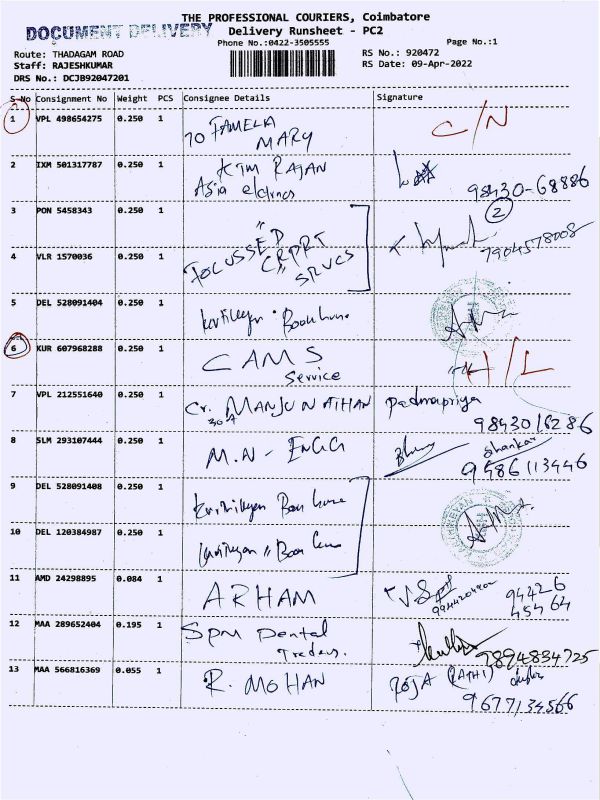 THE PROFESSIONAL COURIERS, Coimbatore
DOCUMENT DELIVERY
Delivery Runsheet - PC2
Phone No.:0422-3505555
Page No.:1
Route: THADAGAM ROAD
RS No.: 920472
Staff: RAJESHKUMAR
RS Date: 09-Apr-2022
DRS No.: DCJB92047201
S No Consignment No Weight PCS Consignee Details Signature
1 VPL 498654275 0.250 1 TO FAMELA C/N
MARY
2 IXM 501317787 0.250 1 KTM RAJAN
Asia 98430-68886
3 PON 5458343 0.250 1 2
7904578008
4 VLR 1570036 0.250 1 FOCUSSED
CRPRT
SRVCS
5 DEL 528091404 0.250 1
6 KUR 607968288 0.250 1 CAMS H/L
Service
7 VPL 212551640 0.250 1 Cr. MANJUNATHAN Padmapriya
8 SLM 293107444 0.250 1 M.N - ENGG Shankar
9486113446
9 DEL 528091408 0.250 1
10 DEL 120384987 0.250 1
11 AMD 24298895 0.084 1 ARHAM 94426
45464
12 MAA 289652404 0.195 1 SPM Dental
Traders. 7894834725
13 MAA 566816369 0.055 1 R. MOHAN ROJA
9677134566